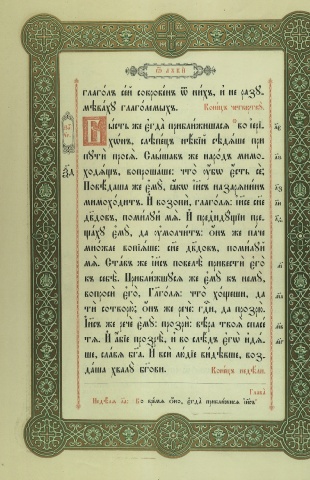 Ѿ ЛꙊКИ́
глаго́лъ се́й сокрове́нъ ѿ ни́хъ, и҆ не разꙋ-
мѣ́вахꙋ глаго́лемыхъ. Коне́цъ четверткꙋ̀.
Бы́сть же є҆гда̀ прибли́жишасѧ во і҆ерї-
хѡ́нъ, слѣпе́цъ нѣ́кїй сѣдѧ́ше при
пꙋтѝ просѧ̀. Слы́шавъ же наро́дъ мимо-
ходѧ́щъ, вопроша́ше: что̀ ᲂу҆́бѡ є҆́сть сѐ;
Повѣ́даша же є҆мꙋ̀, ꙗ҆́кѡ і҆и҃съ назарѧни́нъ
мимохо́дитъ. И҆ возопѝ, глаго́лѧ: і҆и҃се сн҃е
дв҃довъ, поми́лꙋй мѧ̀. И҆ предидꙋ́щїи пре-
ща́хꙋ є҆мꙋ̀, да ᲂу҆молчи́тъ: ѻ҆́нъ же па́че
мно́жае вопїѧ́ше: сн҃е дв҃довъ, поми́лꙋй
мѧ̀. Ста́въ же і҆и҃съ повелѣ̀ привестѝ є҆го̀
къ себѣ̀. Прибли́жшꙋсѧ же є҆мꙋ̀ къ немꙋ̀,
вопросѝ є҆го̀, Гл҃аго́лѧ: что̀ хо́щеши, да
тѝ сотворю̀; ѻ҆́нъ же речѐ: гд҇и, да прозрю̀.
І҆и҃съ же речѐ є҆мꙋ̀: прозрѝ: вѣ́ра твоѧ̀ спасе́
тѧ. И҆ а҆́бїе прозрѣ̀, и҆ во слѣ́дъ є҆гѡ̀ и҆дѧ́-
ше, сла́вѧ бг҃а. И҆ всѝ лю́дїе ви́дѣвше, воз-
да́ша хвалꙋ̀ бг҃ови. Коне́цъ недѣ́ли.
Глава̀
Недѣ́лѧ л҃а: Во вре́мѧ ѻ҆́но, є҆гда̀ прибли́жисѧ і҆и҃съ